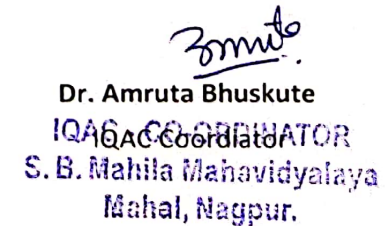 Dr. Amruta Bhuskute
IQAC CO-ORDINATOR
IQAC Coordiator
S. B. Mahila Mahavidyalaya
Mahal, Nagpur.